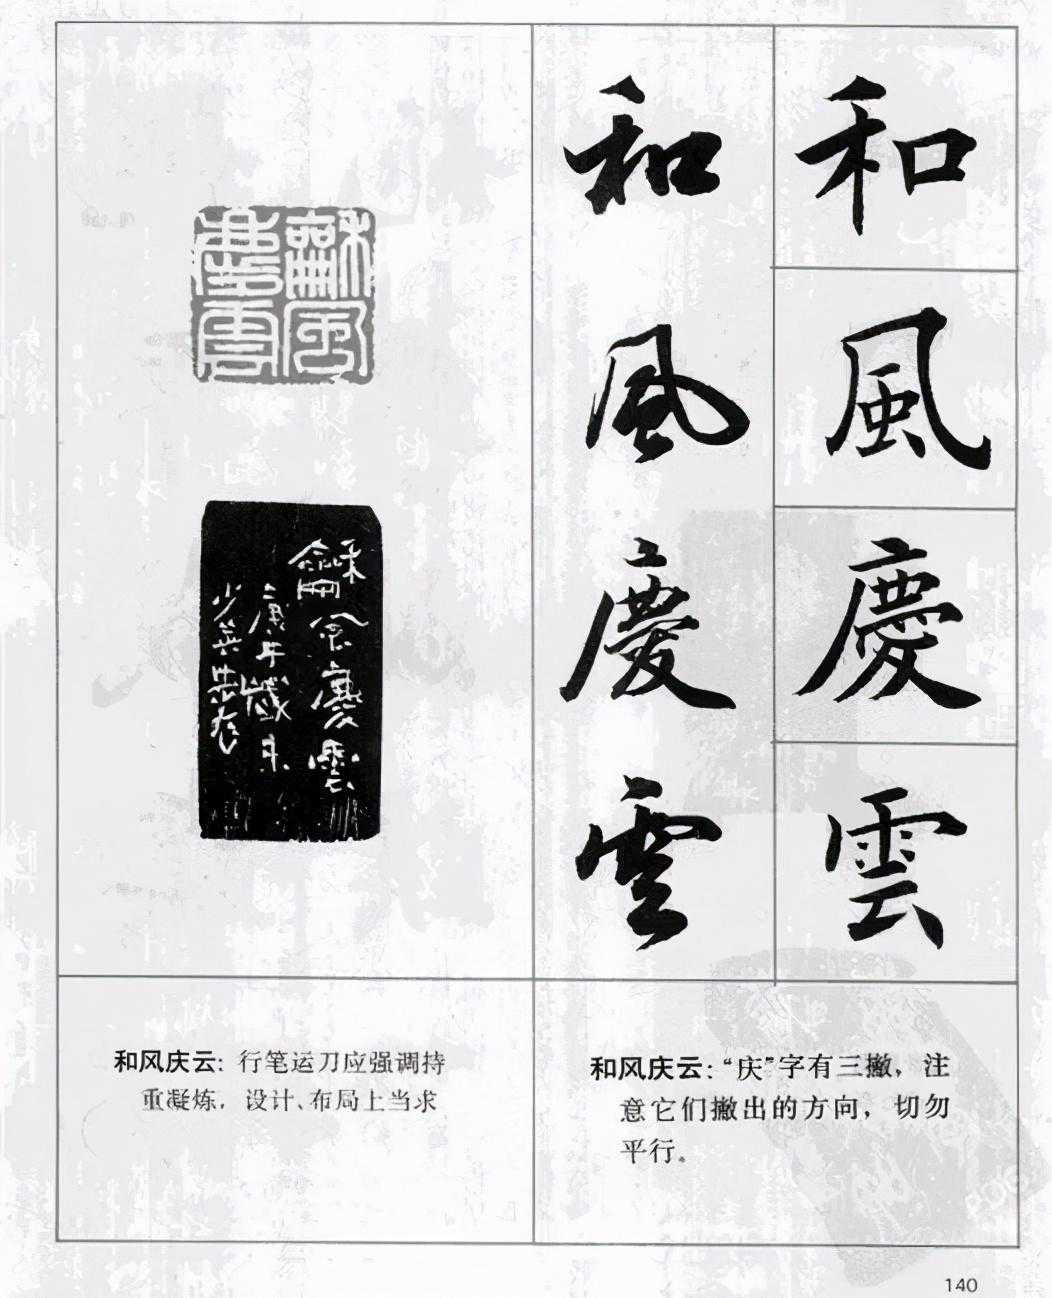 和
風
慶
雲
和
風
慶
雲
龢風
慶雲
龢風慶雲
庚午歲朱
和风庆云：行笔运刀应强调持
重凝炼，设计、布局上当求
和风庆云：“庆”字有三撇，注
意它们撇出的方向，切勿
平行。
140